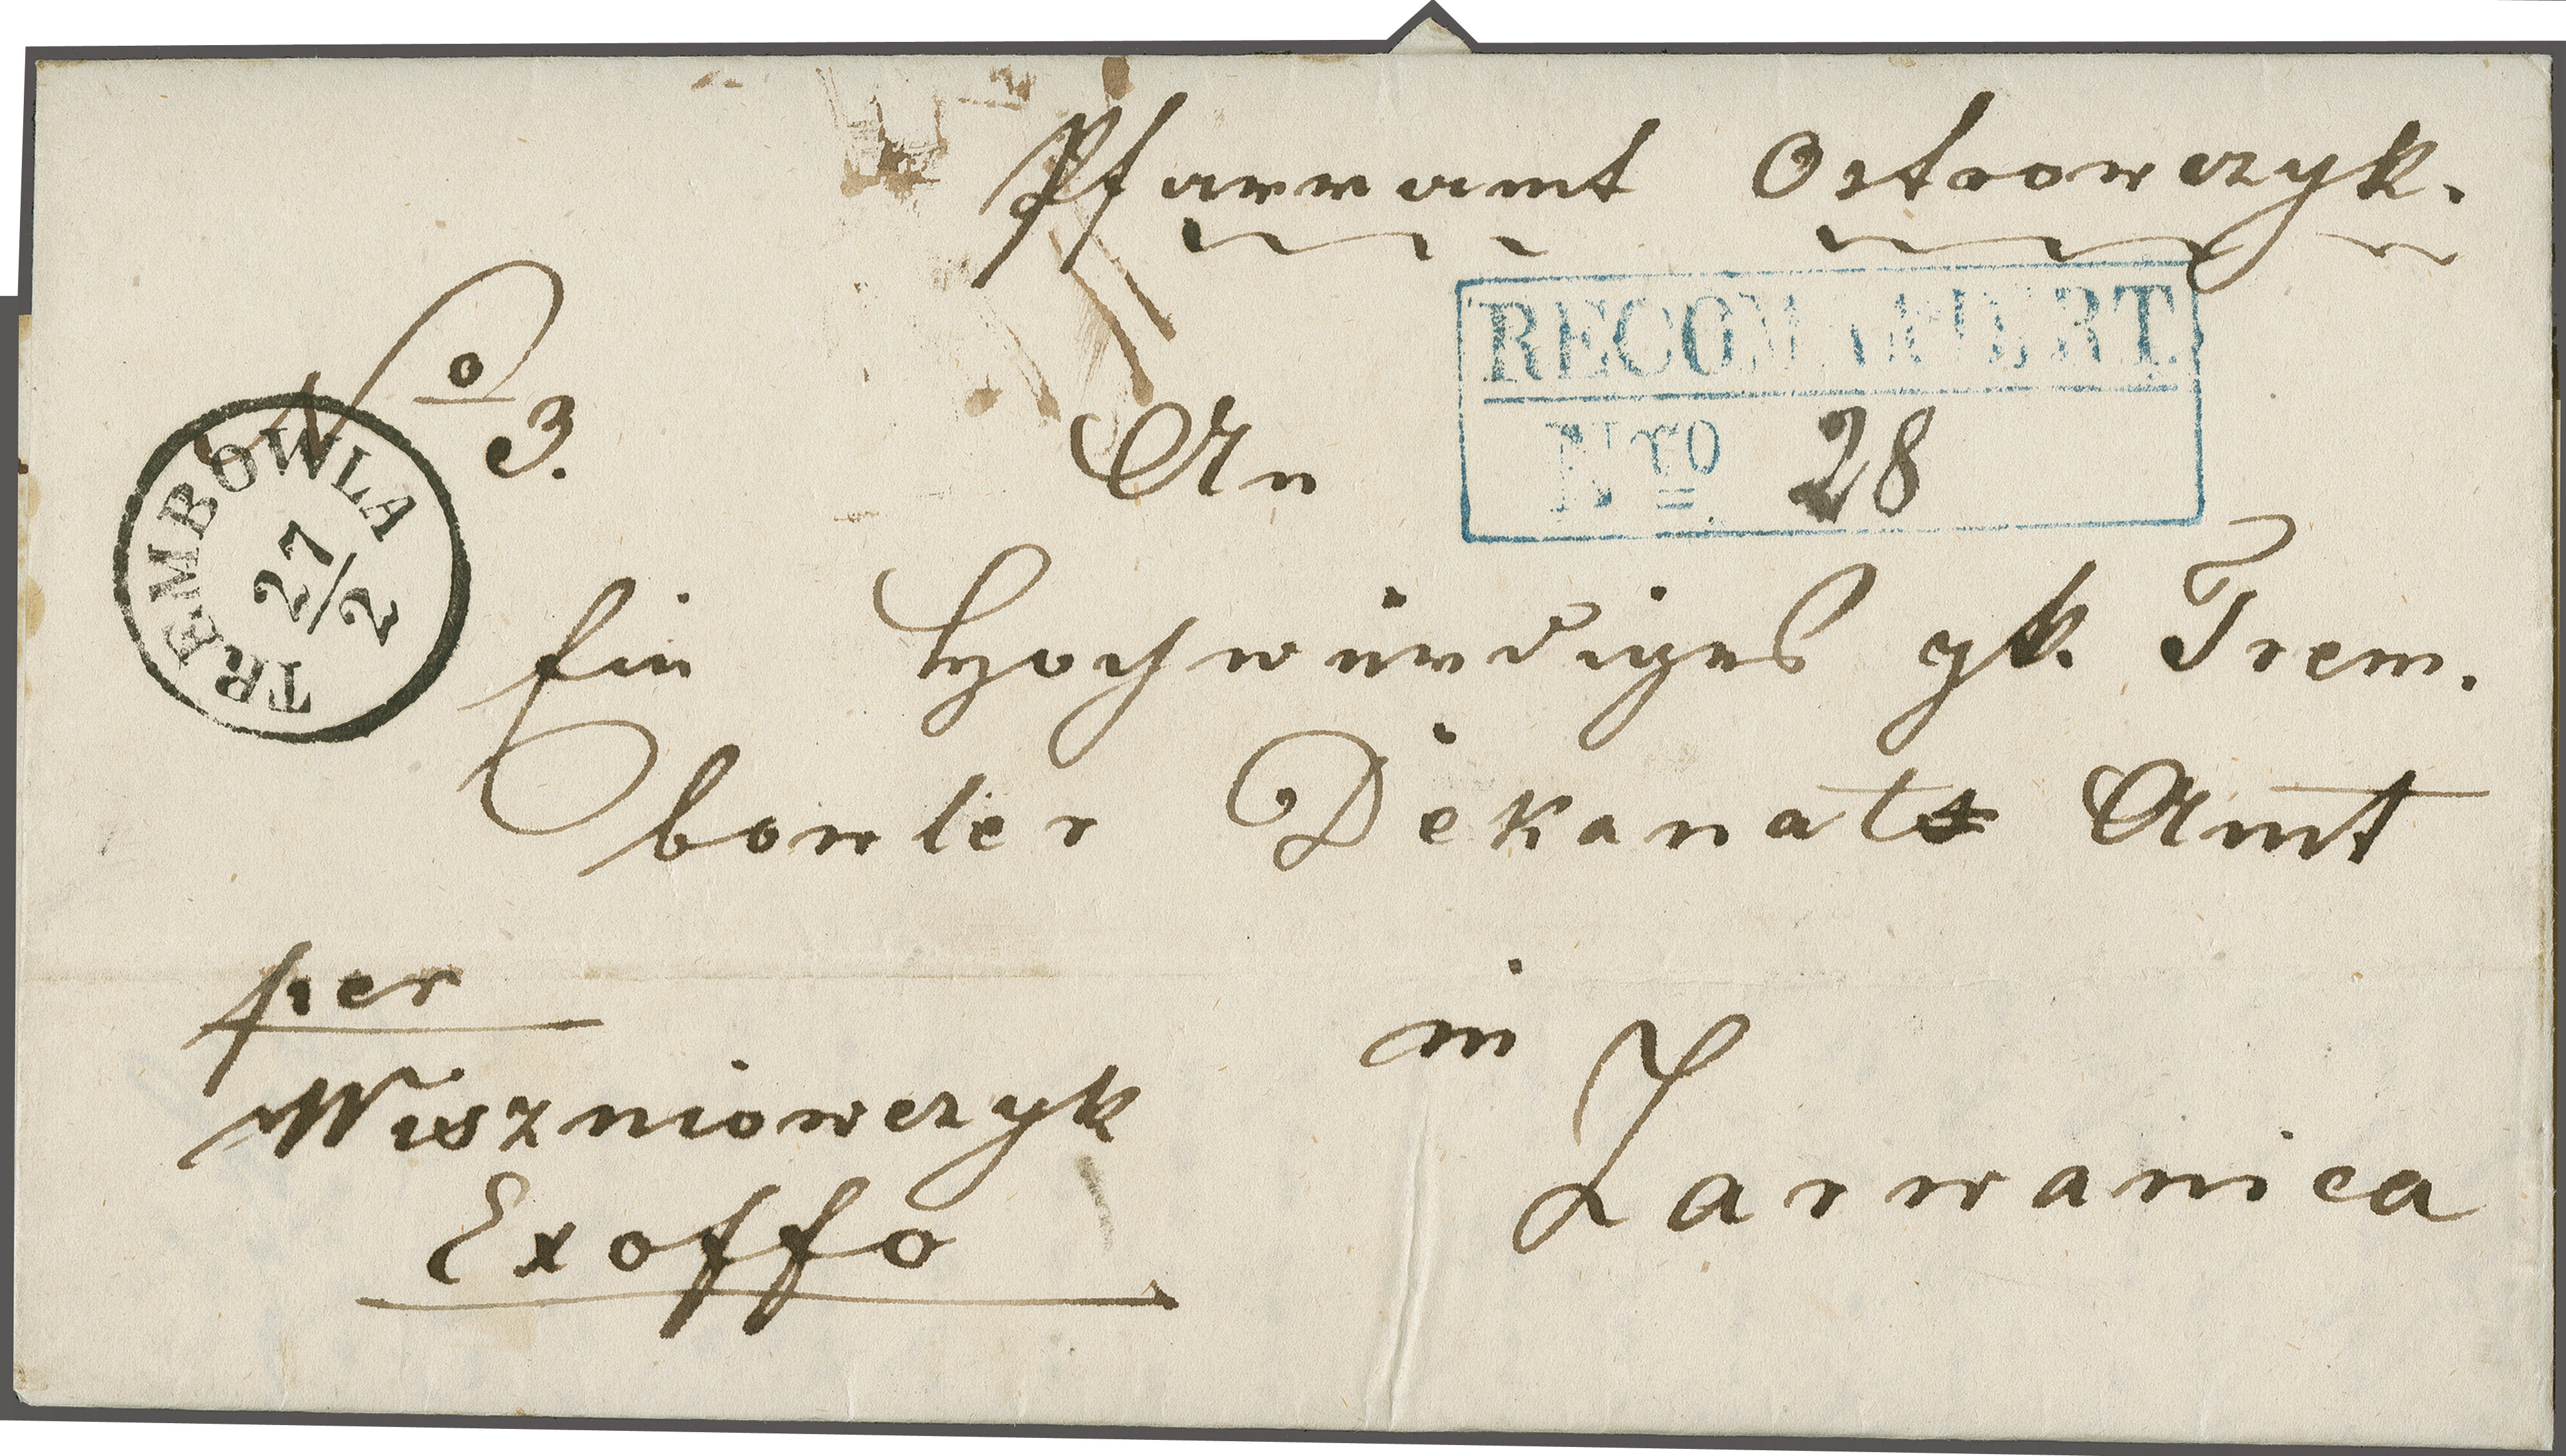 Pfarramt Ostrowczyk.
No 3.
RECOMANDIRT
Nro 28
TREMBOWLA
27/2
An
Ein Hochwürdiges gk. Trem.
bowler Dekanats Amt
per
Wiszniowczyk
Exoffo
in
Zarwanica